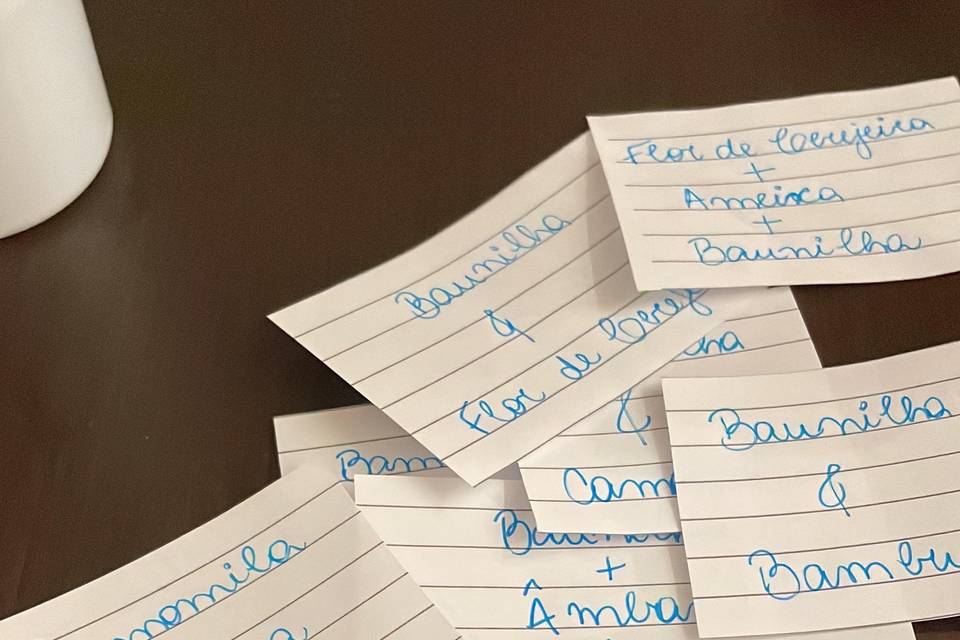 Flor de Cerejeira
+
Ameixa
+
Baunilha
Baunilha
&
Flor de Cerej
nha
&
Cam
Baunilha
&
Bambu
Bam
+
Âmba
momila